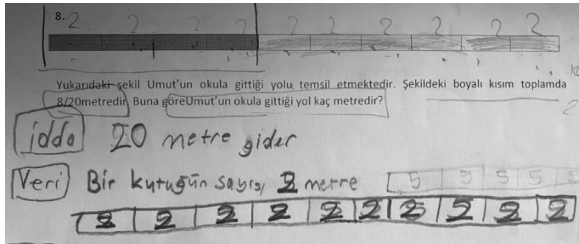 8. 2 2 2 2 2 2 2 2 2 2
Yukarıdaki şekil Umut'un okula gittiği yolu temsil etmektedir. Şekildeki boyalı kısım toplamda
8/20metredir. Buna göreUmut'un okula gittiği yol kaç metredir?
idda 20 metre gider
Veri Bir kutuğun sayısı 2 metre 5 5 5 5
2 2 2 2 2 2 2 2 2 2